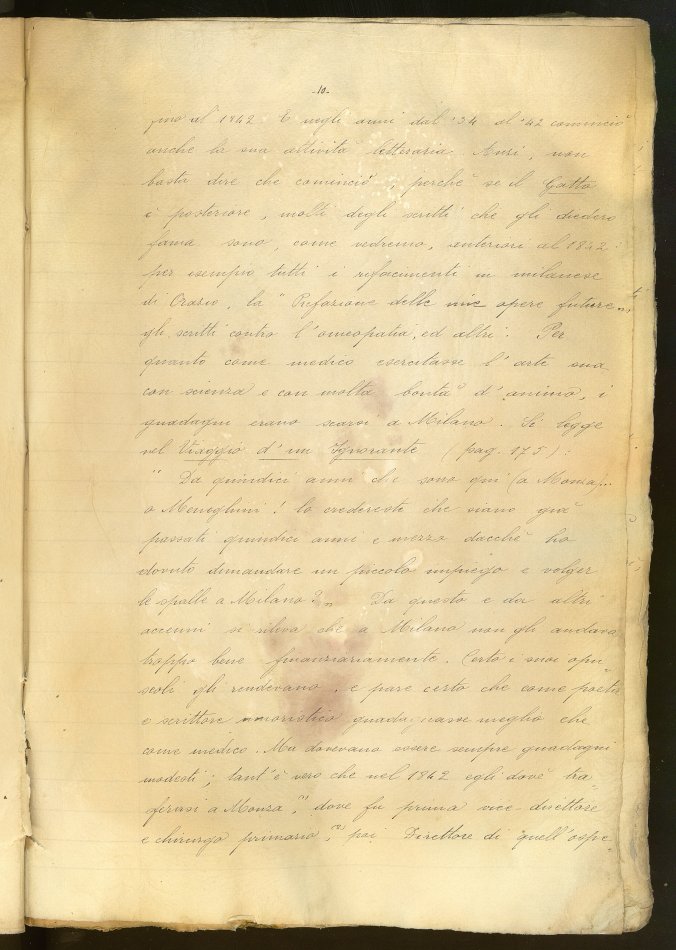 -10-
fino al 1842. E negli anni dal '34 al '42 cominciò
anche la sua attività letteraria. Anzi, non
basta dire che cominciò, perchè se il Gatto
è posteriore, molti degli scritti che gli diedero
fama sono, come vedremo, anteriori al 1842:
per esempio tutti i rifacimenti in milanese
di Orazio, la "Prefazione delle mie opere future„
gli scritti contro l'omeopatia, ed altri. Per
quanto come medico esercitasse l'arte sua
con scienza e con molta bontà d'animo, i
guadagni erano scarsi a Milano. Si legge
nel Viaggio d'un Ignorante (pag. 175):
" Da quindici anni che sono qui (a Monza)...
o Meneghini! lo credereste che siano già
passati quindici anni e mezzo dacchè ho
dovuto dimandare un piccolo impiego e volger
le spalle a Milano?„ Da questo e da altri
accenni si rileva che a Milano non gli andava
troppo bene finanziariamente. Certo i suoi opu-
scoli gli rendevano, e pure certo che come poeta
e scrittore umoristico guadagnasse meglio che
come medico. Ma dovevano essere sempre guadagni
modesti; tant'è vero che nel 1842 egli dovè tra-
sferirsi a Monza, (1) dove fu prima vice-direttore
e chirurgo primario, (2) poi Direttore di quell'ospe-